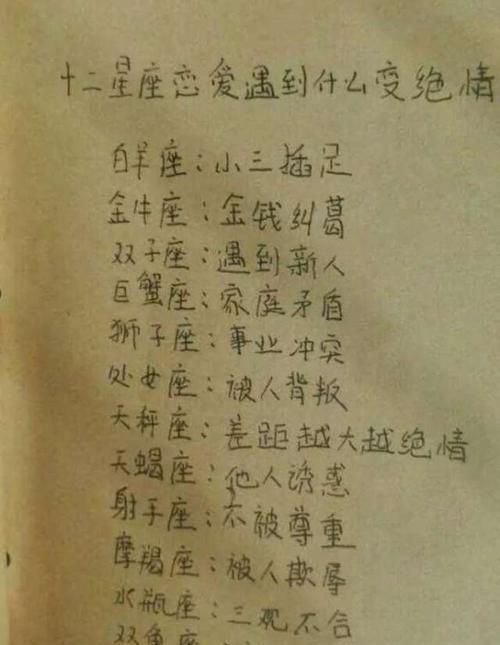 十二星座恋爱遇到什么变绝情
白羊座：小三插足
金牛座：金钱纠葛
双子座：遇到新人
巨蟹座：家庭矛盾
狮子座：事业冲突
处女座：被人背叛
天秤座：差距越大越绝情
天蝎座：他人诱惑
射手座：不被尊重
摩羯座：被人欺辱
水瓶座：三观不合
双鱼座